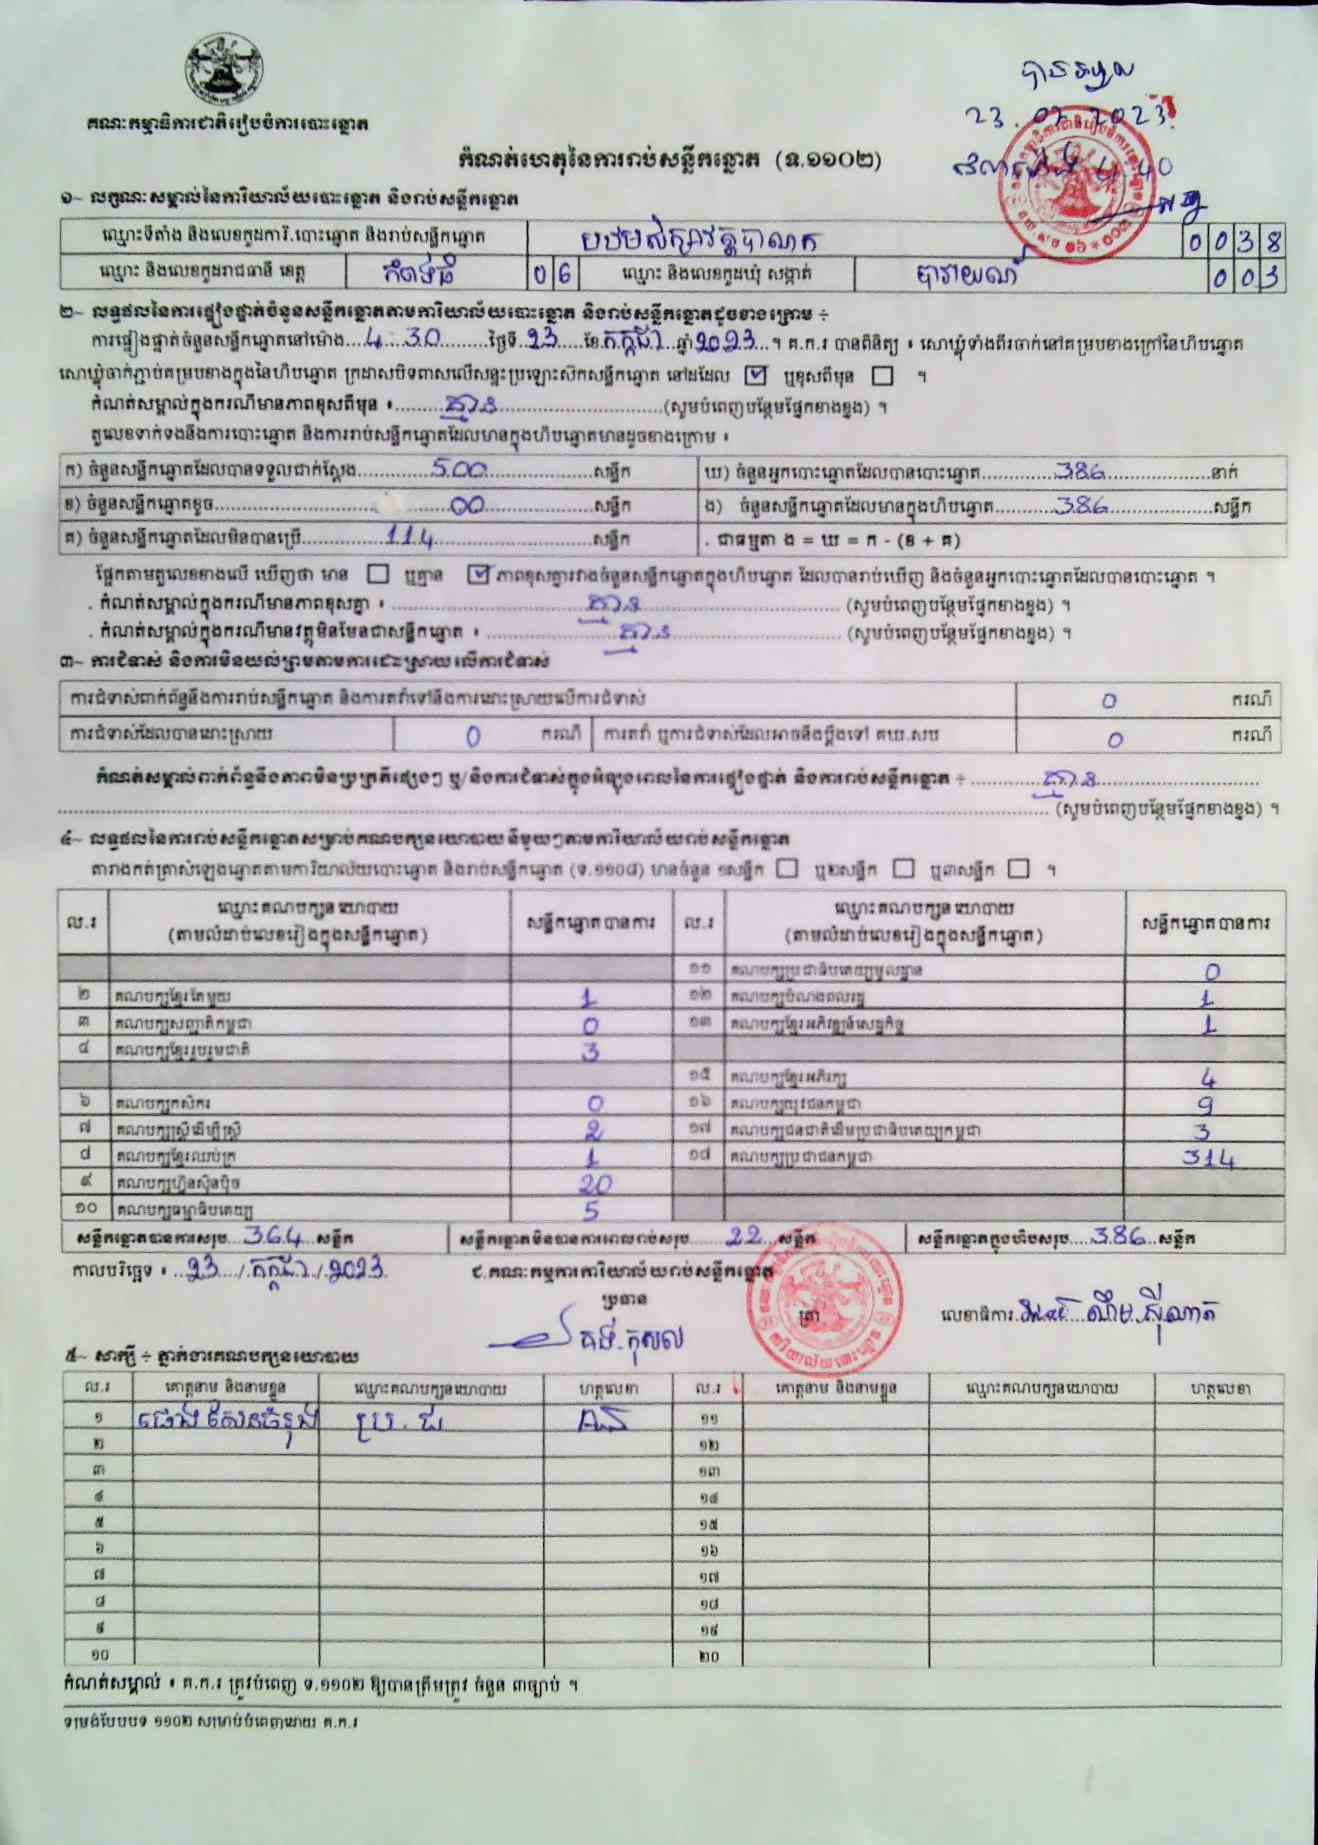 គណៈកម្មាធិការជាតិរៀបចំការបោះឆ្នោត
បានទទួល
23.07.2023
4:40
កំណត់ហេតុនៃការរាប់សន្លឹកឆ្នោត (ទ.១១០២)
១~ លក្ខណៈសម្គាល់នៃការិយាល័យបោះឆ្នោត និងរាប់សន្លឹកឆ្នោត
ឈ្មោះទីតាំង និងលេខកូដការិ.បោះឆ្នោត និងរាប់សន្លឹកឆ្នោត បឋមសិក្សាវត្តបាណក 0038
ឈ្មោះ និងលេខកូដរាជធានី ខេត្ត កំពង់ធំ 06 ឈ្មោះ និងលេខកូដឃុំ សង្កាត់ បារាយណ៍ 003
២~ លទ្ធផលនៃការផ្ទៀងផ្ទាត់ចំនួនសន្លឹកឆ្នោតតាមការិយាល័យបោះឆ្នោត និងរាប់សន្លឹកឆ្នោតដូចខាងក្រោម ÷
ការផ្ទៀងផ្ទាត់ចំនួនសន្លឹកឆ្នោតនៅម៉ោង....4...30.........ថ្ងៃទី..23......ខែ.កក្កដា...ឆ្នាំ2023...។ គ.ក.រ បានពិនិត្យ ៖ សោឃ្មុំទាំងពីរចាក់នៅគម្របខាងក្រៅនៃហិបឆ្នោត
សោឃ្មុំចាក់ភ្ជាប់គម្របខាងក្នុងនៃហិបឆ្នោត ក្រដាសបិទពាសលើសន្ទះប្រឡោះស៊កសន្លឹកឆ្នោត នៅដដែល ☑ ឬខុសពីមុន ☐ ។
កំណត់សម្គាល់ក្នុងករណីមានភាពខុសពីមុន ៖.........គ្មាន..............................(សូមបំពេញបន្ថែមផ្នែកខាងខ្នង) ។
តួលេខទាក់ទងនឹងការបោះឆ្នោត និងការរាប់សន្លឹកឆ្នោតដែលមានក្នុងហិបឆ្នោតមានដូចខាងក្រោម ៖
ក) ចំនួនសន្លឹកឆ្នោតដែលបានទទួលជាក់ស្តែង.............500..................សន្លឹក ឃ) ចំនួនអ្នកបោះឆ្នោតដែលបានបោះឆ្នោត.............386..................នាក់
ខ) ចំនួនសន្លឹកឆ្នោតខូច.........................................00..................សន្លឹក ង) ចំនួនសន្លឹកឆ្នោតដែលមានក្នុងហិបឆ្នោត...........386..................សន្លឹក
គ) ចំនួនសន្លឹកឆ្នោតដែលមិនបានប្រើ..............114.........................សន្លឹក . ជាធម្មតា ង = ឃ = ក - (ខ + គ)
ផ្អែកតាមតួលេខខាងលើ ឃើញថា មាន ☐ ឬគ្មាន ☑ ភាពខុសគ្នារវាងចំនួនសន្លឹកឆ្នោតក្នុងហិបឆ្នោត ដែលបានរាប់ឃើញ និងចំនួនអ្នកបោះឆ្នោតដែលបានបោះឆ្នោត ។
. កំណត់សម្គាល់ក្នុងករណីមានភាពខុសគ្នា ៖ ..................................គ្មាន................................... (សូមបំពេញបន្ថែមផ្នែកខាងខ្នង) ។
. កំណត់សម្គាល់ក្នុងករណីមានវត្ថុមិនមែនជាសន្លឹកឆ្នោត ៖ .......................គ្មាន.............................. (សូមបំពេញបន្ថែមផ្នែកខាងខ្នង) ។
៣~ ការជំទាស់ និងការមិនយល់ព្រមតាមការដោះស្រាយលើការជំទាស់
ការជំទាស់ពាក់ព័ន្ធនឹងការរាប់សន្លឹកឆ្នោត និងការតវ៉ាទៅនឹងការដោះស្រាយលើការជំទាស់ 0 ករណី
ការជំទាស់ដែលបានដោះស្រាយ 0 ករណី ការតវ៉ា ឬការជំទាស់ដែលអាចនឹងប្តឹងទៅ គឃ.សប 0 ករណី
កំណត់សម្គាល់ពាក់ព័ន្ធនឹងភាពមិនប្រក្រតីផ្សេងៗ ឬ/និងការជំទាស់ក្នុងអំឡុងពេលនៃការផ្ទៀងផ្ទាត់ និងការរាប់សន្លឹកឆ្នោត ÷ ............គ្មាន............................
........................................ (សូមបំពេញបន្ថែមផ្នែកខាងខ្នង) ។
៤~ លទ្ធផលនៃការរាប់សន្លឹកឆ្នោតសម្រាប់គណបក្សនយោបាយនីមួយៗតាមការិយាល័យរាប់សន្លឹកឆ្នោត
តារាងកត់ត្រាសំឡេងឆ្នោតតាមការិយាល័យបោះឆ្នោត និងរាប់សន្លឹកឆ្នោត (ទ.១១០៨) មានចំនួន ១សន្លឹក ☐ ឬ២សន្លឹក ☐ ឬ៣សន្លឹក ☐ ។
ល.រ ឈ្មោះគណបក្សនយោបាយ សន្លឹកឆ្នោតបានការ ល.រ ឈ្មោះគណបក្សនយោបាយ សន្លឹកឆ្នោតបានការ
(តាមលំដាប់លេខរៀងក្នុងសន្លឹកឆ្នោត) (តាមលំដាប់លេខរៀងក្នុងសន្លឹកឆ្នោត)
១១ គណបក្សប្រជាធិបតេយ្យមូលដ្ឋាន 0
២ គណបក្សខ្មែរតែមួយ 1 ១២ គណបក្សបំណងពលរដ្ឋ 1
៣ គណបក្សសញ្ជាតិកម្ពុជា 0 ១៣ គណបក្សខ្មែរអភិវឌ្ឍន៍សេដ្ឋកិច្ច 1
៤ គណបក្សខ្មែររួបរួមជាតិ 3
១៥ គណបក្សខ្មែរអភិរក្ស 4
៦ គណបក្សកសិករ 0 ១៦ គណបក្សយុវជនកម្ពុជា 9
៧ គណបក្សស្ត្រីដើម្បីស្ត្រី 2 ១៧ គណបក្សជនជាតិដើមប្រជាធិបតេយ្យកម្ពុជា 3
៨ គណបក្សខ្មែរឈប់ក្រ 1 ១៨ គណបក្សប្រជាជនកម្ពុជា 314
៩ គណបក្សហ៊្វុនស៊ិនប៉ិច 20
១០ គណបក្សធម្មាធិបតេយ្យ 5
សន្លឹកឆ្នោតបានការសរុប...364...សន្លឹក សន្លឹកឆ្នោតមិនបានការពេលរាប់សរុប.......22...សន្លឹក សន្លឹកឆ្នោតក្នុងហិបសរុប....386..សន្លឹក
កាលបរិច្ឆេទ ៖ ..23.../.កក្កដា./.2023. ជ.គណៈកម្មការការិយាល័យរាប់សន្លឹកឆ្នោត
ប្រធាន
គង់.កុសល ត្រា លេខាធិការ. ណឹម.ស៊ីណាត
៥~ សាក្សី ÷ ភ្នាក់ងារគណបក្សនយោបាយ
ល.រ គោត្តនាម និងនាមខ្លួន ឈ្មោះគណបក្សនយោបាយ ហត្ថលេខា ល.រ គោត្តនាម និងនាមខ្លួន ឈ្មោះគណបក្សនយោបាយ ហត្ថលេខា
១ ប្រ.ជ ១១
២ ១២
៣ ១៣
៤ ១៤
៥ ១៥
៦ ១៦
៧ ១៧
៨ ១៨
៩ ១៩
១០ ២០
កំណត់សម្គាល់ ៖ គ.ក.រ ត្រូវបំពេញ ទ.១១០២ ឱ្យបានត្រឹមត្រូវ ចំនួន ៣ច្បាប់ ។
ទម្រង់បែបបទ ១១០២ សម្រាប់បំពេញដោយ គ.ក.រ